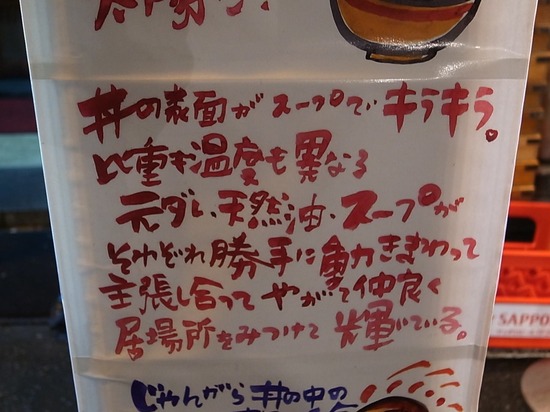 丼の表面が スープで キラキラ。
比重も温度も異なる
元ダレ、天然油、スープが
それぞれ勝手に動きまわって
主張し合って やがて仲良く
居場所をみつけて 輝いている。
じゃんがら丼の中の
SAPPO